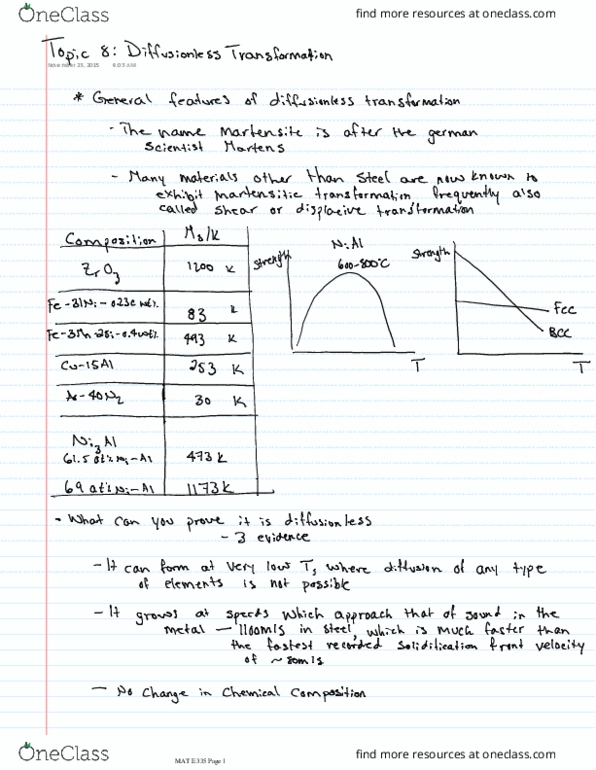 OneClass
find more resources at oneclass.com
Topic 8: Diffusionless Transformation
November 23, 2015 8:03 AM
* General features of diffusionless transformation
- The name Martensite is after the german
Scientist Martens
- Many materials other than Steel are now known to
exhibit martensitic transformation, frequently also
called shear or displacive transformation
Composition Ms/K
ZrO3 1200 K
Fe-31Ni-0.23C wt% 83 K
Fe-3Mn-2Si-0.4wt% 493 K
Cu-15Al 253 K
Ar-40N2 30 K
Ni3Al
61.5 at% Ni-Al 473 K
69 at% Ni-Al 1173 K
Strength
Ni3Al
600-800°C
T
Strength
FCC
BCC
T
- What can you prove it is diffusionless
- 3 evidence
- It can form at very low T, where diffusion of any type
of elements is not possible
- It grows at speeds which approach that of sound in the
metal - 1100m/s in steel, which is much faster than
the fastest recorded solidification front velocity
of ~80m/s
- No Change in Chemical Composition
OneClass
MAT E 335 Page 1
find more resources at oneclass.com